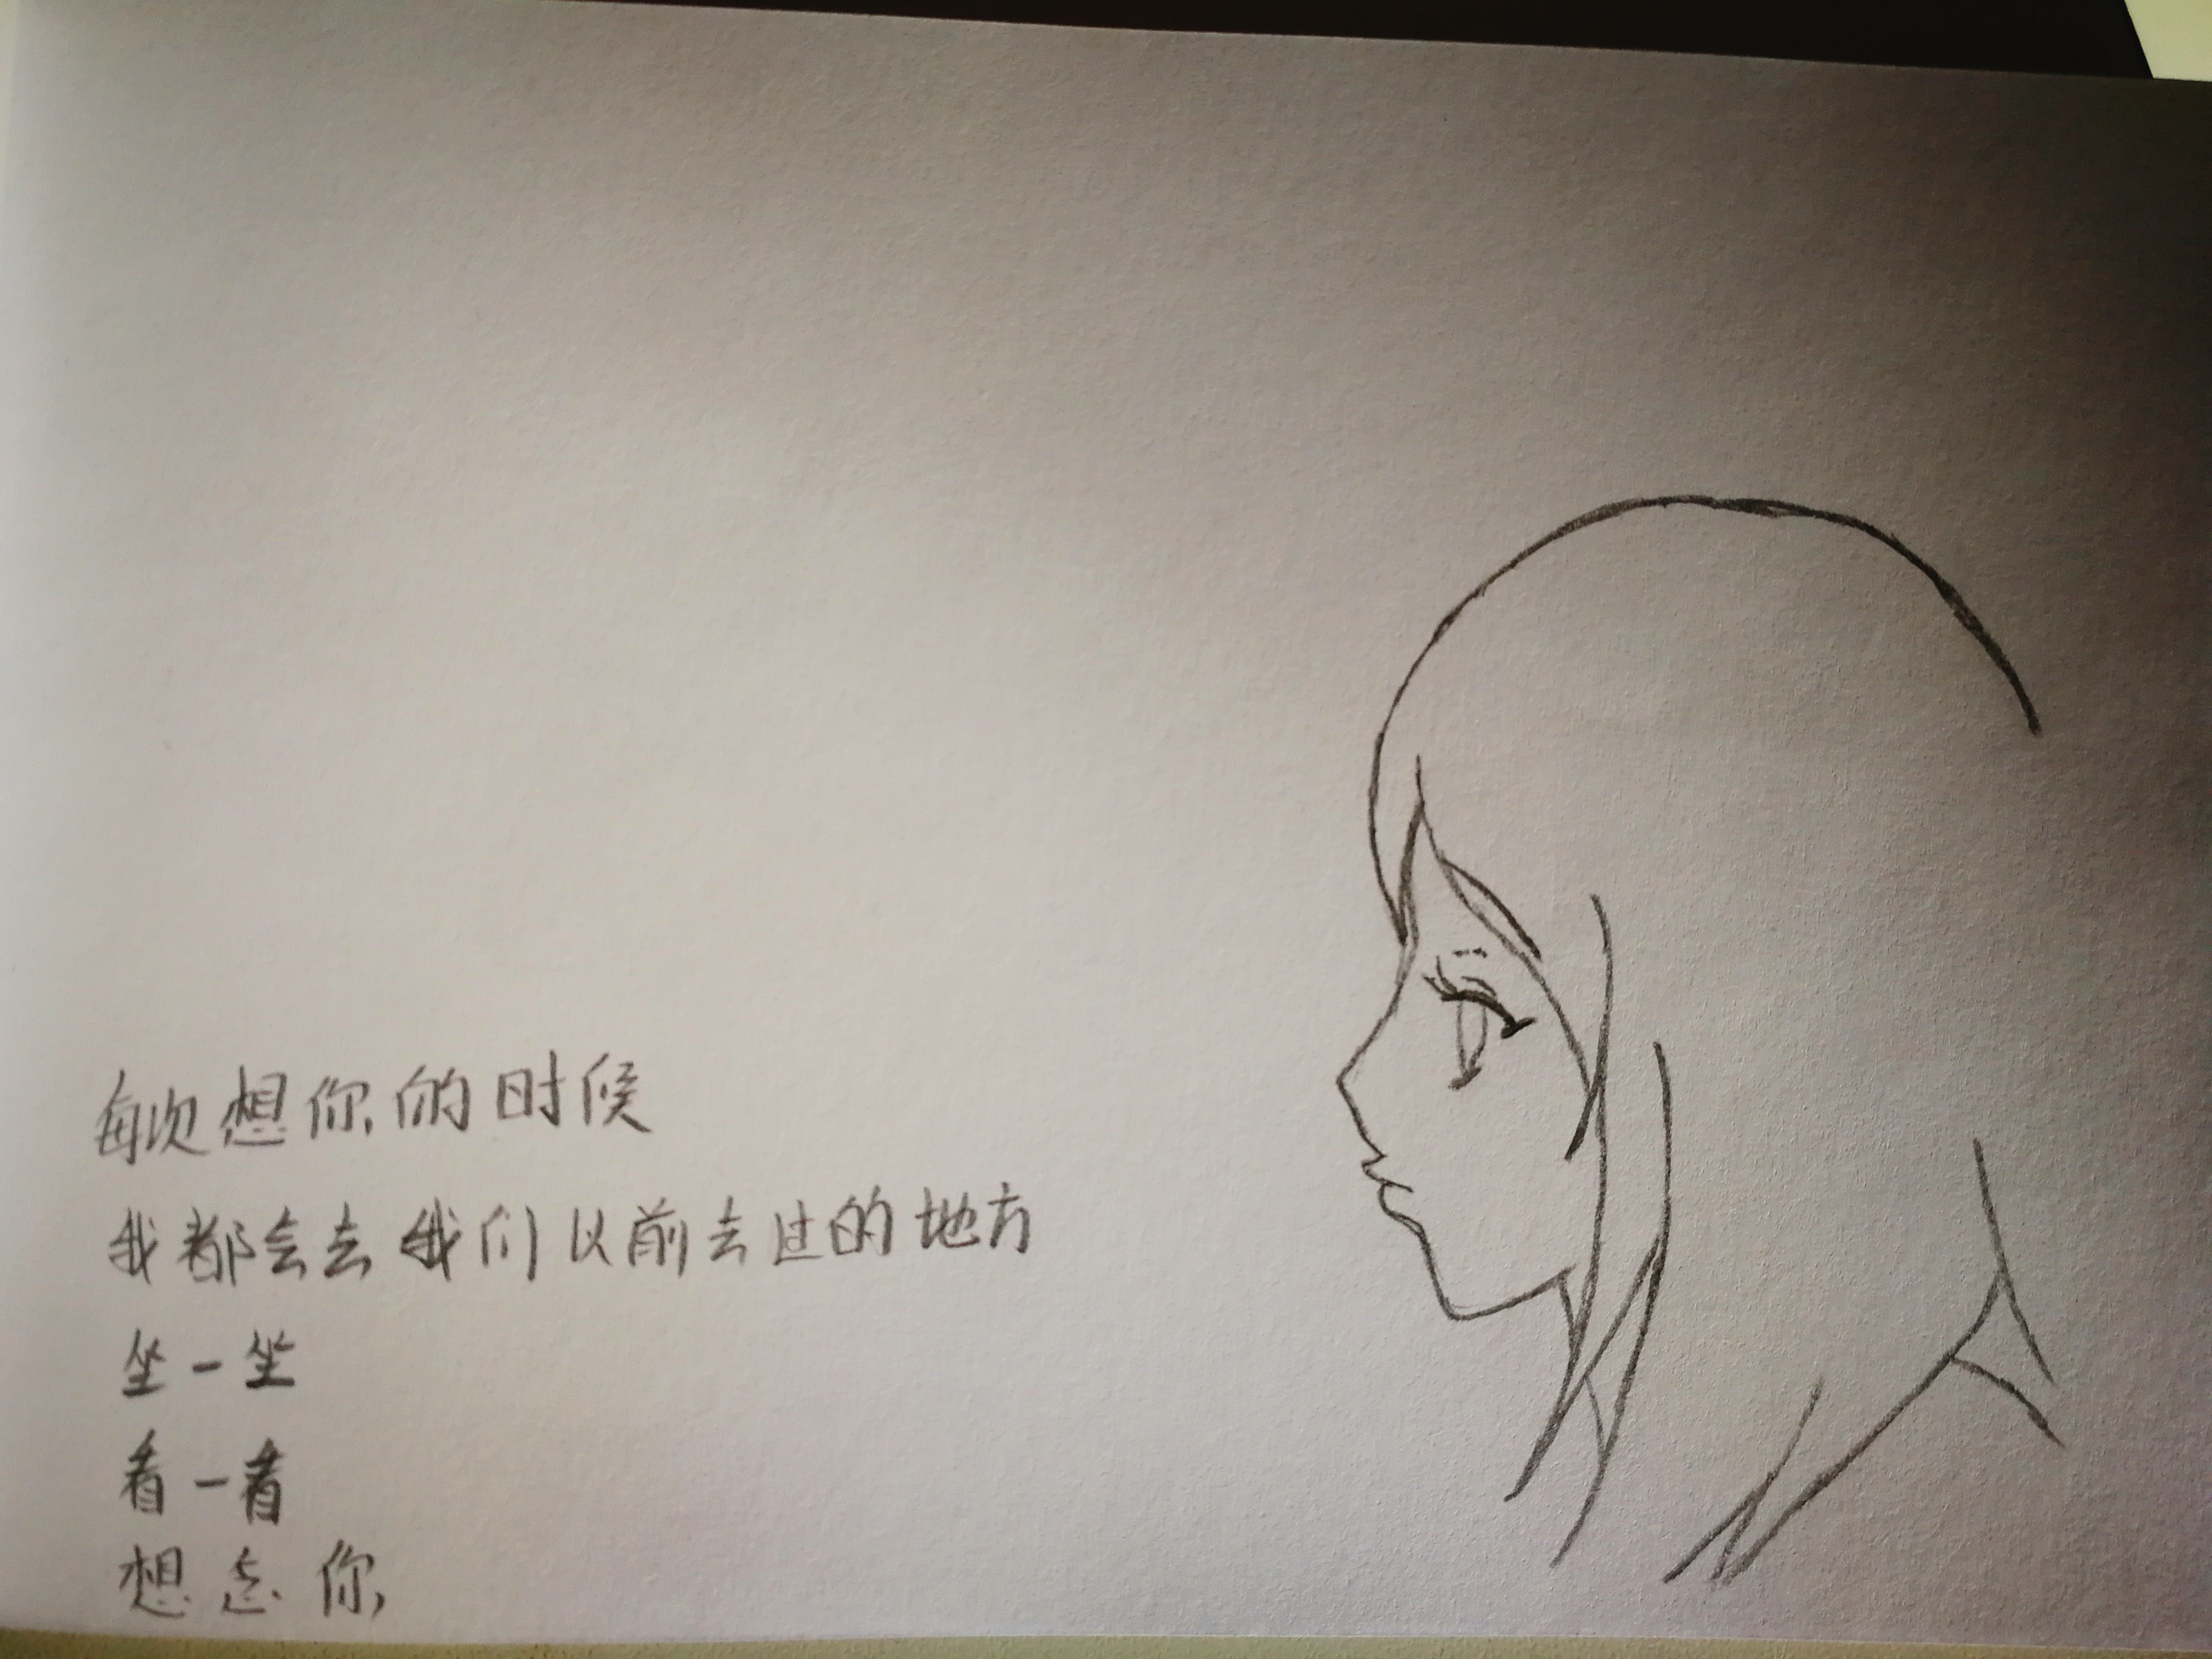 每次想你的时候
我都会去我们以前去过的地方
坐一坐
看一看
想念你